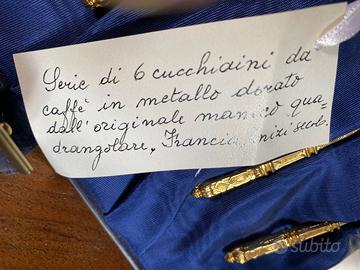 Serie di 6 cucchiaini da
caffè in metallo dorato
dall'originale manico qua=
drangolare, Francia inizi secolo.
subito